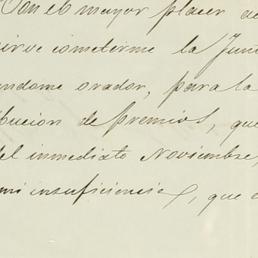 Con el mayor placer ac
sirve cometerme la Jun
ndome orador, para la
ibucion de premios, que
del inmediato Noviembre,
mi insuficiencia, que